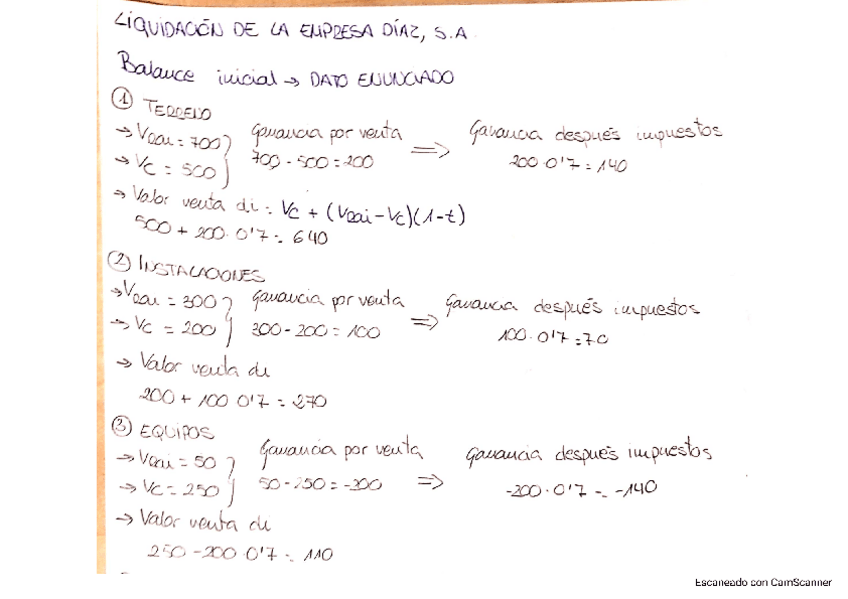 LIQUIDACIÓN DE LA EMPRESA DÍAZ, S.A
Balance inicial → DATO ENUNCIADO
① TERRENO
→ Vvai = 700
→ Vc = 500
Ganancia por venta
700 - 500 = 200
⇒ Ganancia después impuestos
200 · 0'7 = 140
→ Valor venta di = Vc + (Vvai - Vc)(1-t)
500 + 200 · 0'7 = 640
② INSTALACIONES
→ Vvai = 300
→ Vc = 200
Ganancia por venta
300 - 200 = 100
⇒ Ganancia después impuestos
100 · 0'7 = 70
→ Valor venta di
200 + 100 0'7 = 270
③ EQUIPOS
→ Vvai = 50
→ Vc = 250
Ganancia por venta
50 - 250 = -200
⇒ Ganancia después impuestos
-200 · 0'7 = -140
→ Valor venta di
250 - 200 · 0'7 = 110
Escaneado con CamScanner